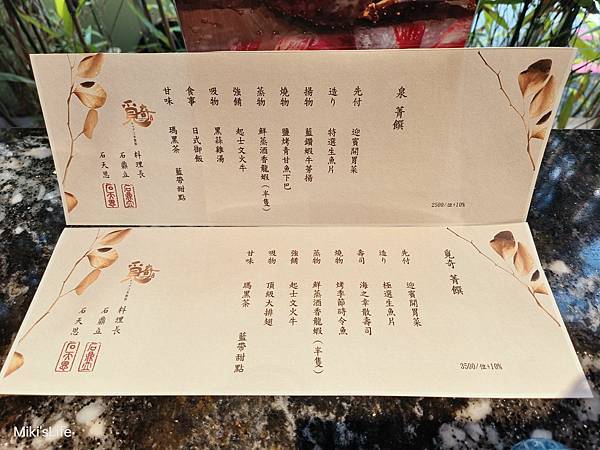 泉 菁饌
先付 迎賓開胃菜
造り 特選生魚片
揚物 藍鑽蝦牛蒡揚
燒物 鹽烤青甘魚下巴
蒸物 鮮蒸酒香龍蝦(半隻)
強餚 起士文火牛
吸物 黑蒜雞湯
食事 日式御飯
甘味 瑪黑茶 藍帶甜點
2500/位+10%
覓奇
料理長
石鼎立
石天恩
覓奇 菁饌
先付 迎賓開胃菜
造り 極選生魚片
壽司 海之幸散壽司
燒物 烤季節時令魚
蒸物 鮮蒸酒香龍蝦(半隻)
強餚 起士文火牛
吸物 頂級大排翅
甘味 瑪黑茶 藍帶甜點
3500/位+10%
覓奇
料理長
石鼎立
石天恩
Miki'sLife